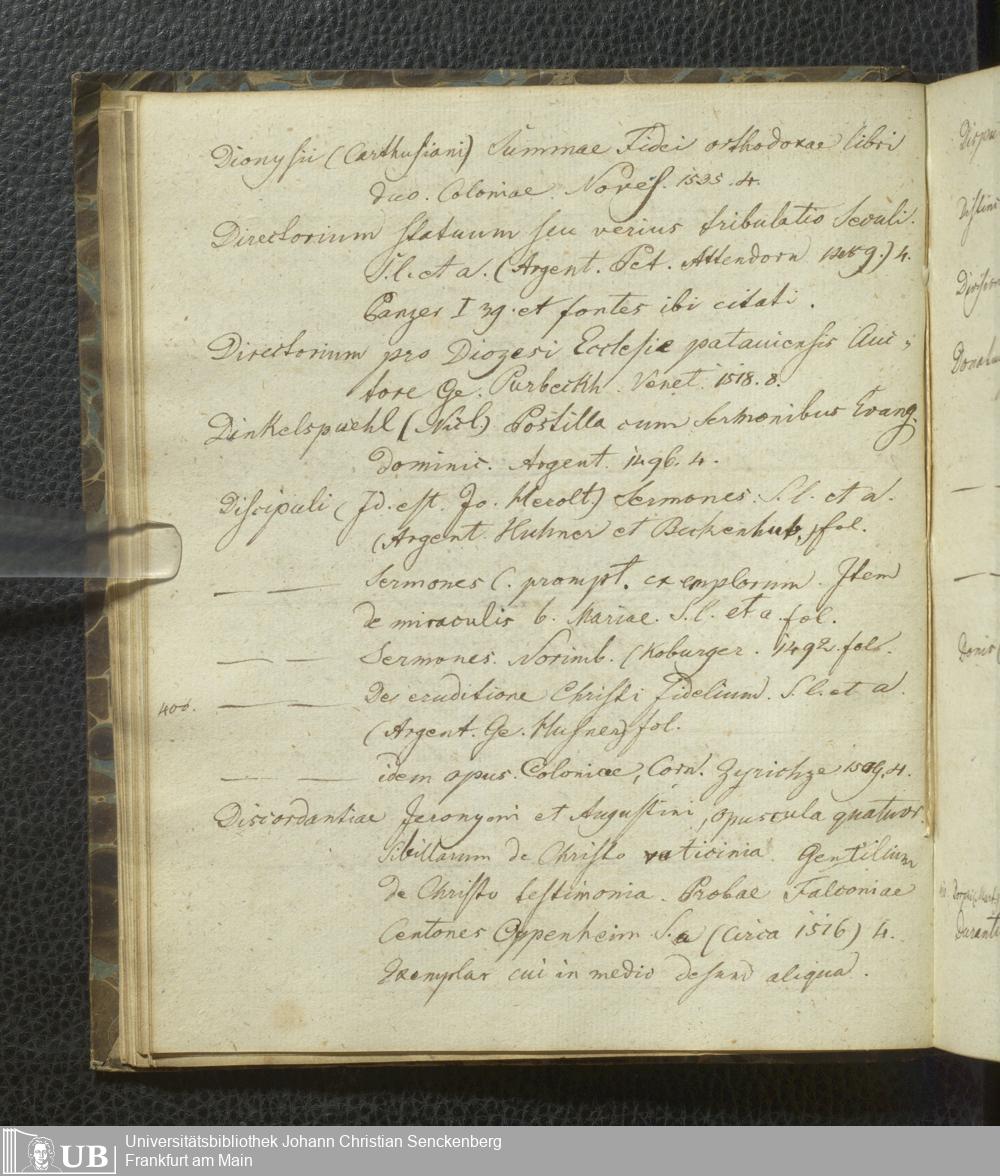 Dionysii (Carthusiani) Summae Fidei orthodoxae libri
duo. Coloniae Noves. 1535. 4.
Directorium statuum seu verius tribulatio Seculi.
S. l. et a. (Argent. Pet. Attendorn 1489.) 4.
Panzer I 39. et fontes ibi citati.
Directorium pro Diozesi Ecclesie patauiensis Auc-
tore Ge. Purbeckh. Venet. 1518. 8.
Dinkelspuehl (Nicl) Postilla cum Sermonibus Evang.
Dominic. Argent. 1496. 4.
Discipuli (Id. est. Jo. Herolt) Sermones. S. l. et a.
(Argent. Huhner et Beckenhub,) fol.
— — Sermones c. prompt. exemplorum. Item
de miraculis b. Mariae. S. l. et a. fol.
— — Sermones. Norimb. (Koburger. 1492. fol.
400. — — De eruditione Christi Fidelium. S. l. et a.
(Argent. Ge. Husner) fol.
— — idem opus. Coloniae, Corn. Zyrichze 1509. 4.
Discordantiae Jeronymi et Augustini, opuscula quatuor
Sibillarum de Christo vaticinia. Gentilium
de Christo testimonia. Probae Falconiae
Centones Oppenheim S. a (circa 1516) 4.
Exemplar cui in medio desunt aliqua.
Distin
Donat
Donis
Duranti
UB
Universitätsbibliothek Johann Christian Senckenberg
Frankfurt am Main